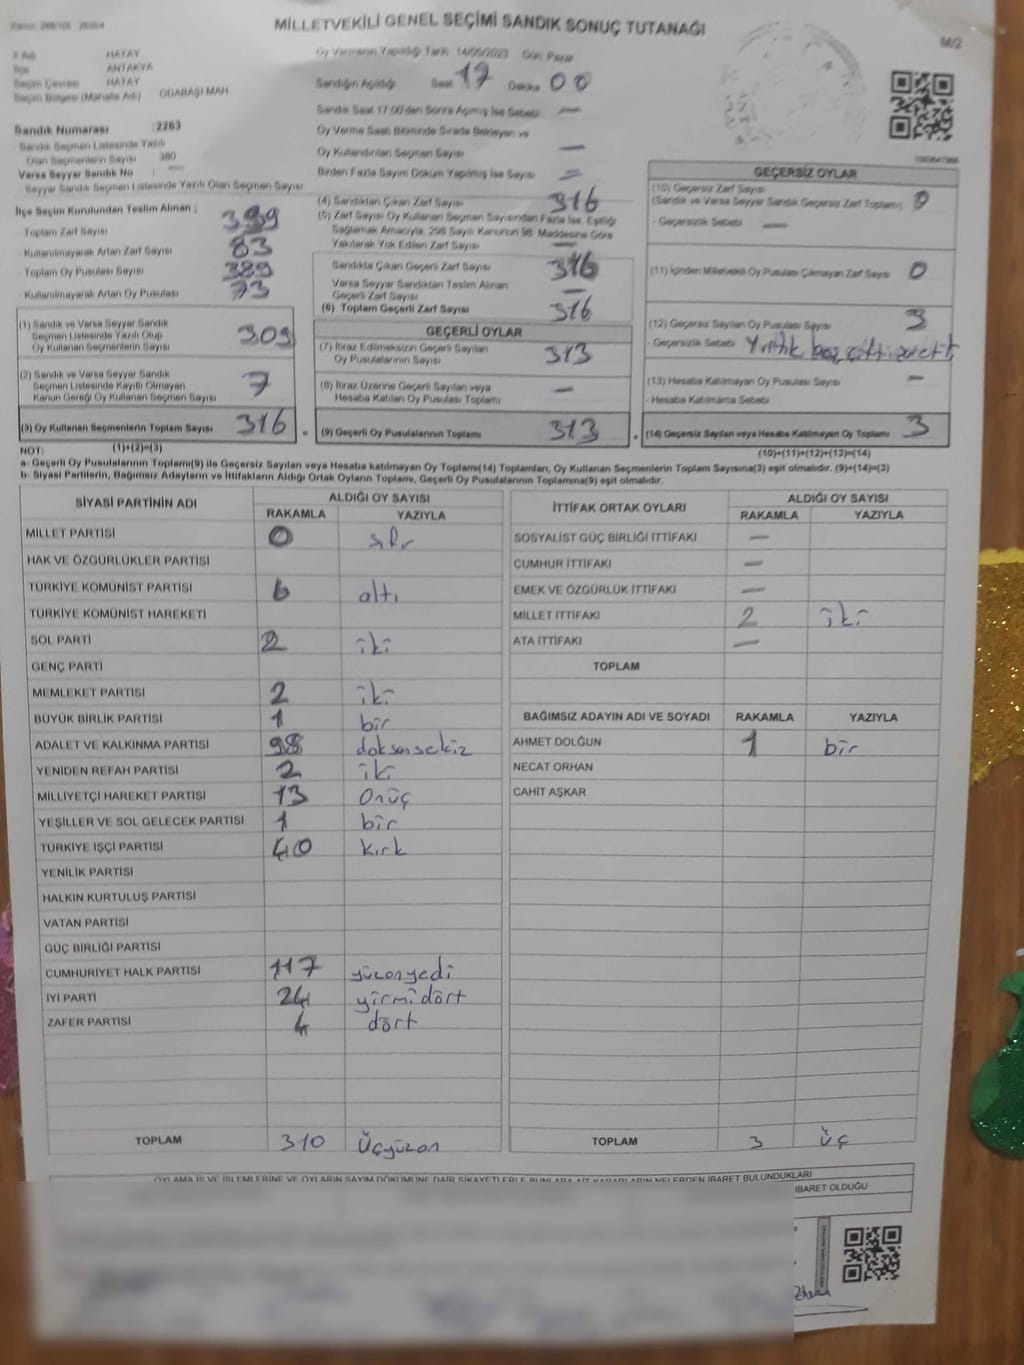 MİLLETVEKİLİ GENEL SEÇİMİ SANDIK SONUÇ TUTANAĞI
M/2
İl Adı HATAY
İlçe ANTAKYA
Seçim Çevresi HATAY
Seçim Bölgesi (Mahalle Adı) ODABAŞI MAH
Sandık Numarası :2263
Sandık Seçmen Listesinde Yazılı
Olan Seçmenlerin Sayısı 380
Varsa Seyyar Sandık No
- Seyyar Sandık Seçmen Listesinde Yazılı Olan Seçmen Sayısı
İlçe Seçim Kurulundan Teslim Alınan ;
Toplam Zarf Sayısı 399
- Kullanılmayarak Artan Zarf Sayısı 83
- Toplam Oy Pusulası Sayısı 389
- Kullanılmayarak Artan Oy Pusulası 73
(1) Sandık ve Varsa Seyyar Sandık
Seçmen Listesinde Yazılı Olup
Oy Kullanan Seçmenlerin Sayısı 309
(2) Sandık ve Varsa Seyyar Sandık
Seçmen Listesinde Kayıtlı Olmayan
Kanun Gereği Oy Kullanan Seçmen Sayısı 7
(3) Oy Kullanan Seçmenlerin Toplam Sayısı 316
Oy Vermenin Yapıldığı Tarih 14/05/2023 Gün: Pazar
Sandığın Açıldığı Saat 17 Dakika 00
Sandık Saat 17:00'den Sonra Açılmış İse Sebebi —
Oy Verme Saati Bitiminde Sırada Bekleyen ve
Oy Kullandırılan Seçmen Sayısı —
Birden Fazla Sayım Döküm Yapılmış İse Sayısı —
(4) Sandıktan Çıkan Zarf Sayısı 316
(5) Zarf Sayısı Oy Kullanan Seçmen Sayısından Fazla İse, Eşitliği
Sağlamak Amacıyla, 298 Sayılı Kanunun 98. Maddesine Göre
Yakılarak Yok Edilen Zarf Sayısı —
Sandıkta Çıkan Geçerli Zarf Sayısı 316
Varsa Seyyar Sandıktan Teslim Alınan
Geçerli Zarf Sayısı —
(6) Toplam Geçerli Zarf Sayısı 316
GEÇERLİ OYLAR
(7) İtiraz Edilmeksizin Geçerli Sayılan
Oy Pusulalarının Sayısı 313
(8) İtiraz Üzerine Geçerli Sayılan veya
Hesaba Katılan Oy Pusulası Toplamı —
= (9) Geçerli Oy Pusulalarının Toplamı 313
GEÇERSİZ OYLAR
(10) Geçersiz Zarf Sayısı
(Sandık ve Varsa Seyyar Sandık Geçersiz Zarf Toplamı) 0
- Geçersizlik Sebebi —
(11) İçinden Milletvekili Oy Pusulası Çıkmayan Zarf Sayısı 0
(12) Geçersiz Sayılan Oy Pusulası Sayısı 3
- Geçersizlik Sebebi Yırtık boş, çift
(13) Hesaba Katılmayan Oy Pusulası Sayısı —
- Hesaba Katılmama Sebebi
+ (14) Geçersiz Sayılan veya Hesaba Katılmayan Oy Toplamı 3
NOT: (1)+(2)=(3)
(10)+(11)+(12)+(13)=(14)
a- Geçerli Oy Pusulalarının Toplamı(9) ile Geçersiz Sayılan veya Hesaba katılmayan Oy Toplamı(14) Toplamları, Oy Kullanan Seçmenlerin Toplam Sayısına(3) eşit olmalıdır. (9)+(14)=(3)
b- Siyasi Partilerin, Bağımsız Adayların ve İttifakların Aldığı Ortak Oyların Toplamı, Geçerli Oy Pusulalarının Toplamına(9) eşit olmalıdır.
SİYASİ PARTİNİN ADI ALDIĞI OY SAYISI
RAKAMLA YAZIYLA
MİLLET PARTİSİ 0 sıfır
HAK VE ÖZGÜRLÜKLER PARTİSİ
TÜRKİYE KOMÜNİST PARTİSİ 6 altı
TÜRKİYE KOMÜNİST HAREKETİ
SOL PARTİ 2 iki
GENÇ PARTİ
MEMLEKET PARTİSİ 2 iki
BÜYÜK BİRLİK PARTİSİ 1 bir
ADALET VE KALKINMA PARTİSİ 98 doksansekiz
YENİDEN REFAH PARTİSİ 2 iki
MİLLİYETÇİ HAREKET PARTİSİ 13 Onüç
YEŞİLLER VE SOL GELECEK PARTİSİ 1 bir
TÜRKİYE İŞÇİ PARTİSİ 40 kırk
YENİLİK PARTİSİ
HALKIN KURTULUŞ PARTİSİ
VATAN PARTİSİ
GÜÇ BİRLİĞİ PARTİSİ
CUMHURİYET HALK PARTİSİ 117 yüzonyedi
İYİ PARTİ 24 yirmidört
ZAFER PARTİSİ 4 dört
TOPLAM 310 Üçyüzon
İTTİFAK ORTAK OYLARI ALDIĞI OY SAYISI
RAKAMLA YAZIYLA
SOSYALİST GÜÇ BİRLİĞİ İTTİFAKI —
CUMHUR İTTİFAKI —
EMEK VE ÖZGÜRLÜK İTTİFAKI —
MİLLET İTTİFAKI 2 iki
ATA İTTİFAKI —
TOPLAM
BAĞIMSIZ ADAYIN ADI VE SOYADI RAKAMLA YAZIYLA
AHMET DOLĞUN 1 bir
NECAT ORHAN
CAHİT AŞKAR
TOPLAM 3 üç
OYLAMA İŞ VE İŞLEMLERİNE VE OYLARIN SAYIM DÖKÜMÜNE DAİR ŞİKAYETLERLE BUNLARA AİT KARARLARIN NELERDEN İBARET BULUNDUKLARI
İBARET OLDUĞU